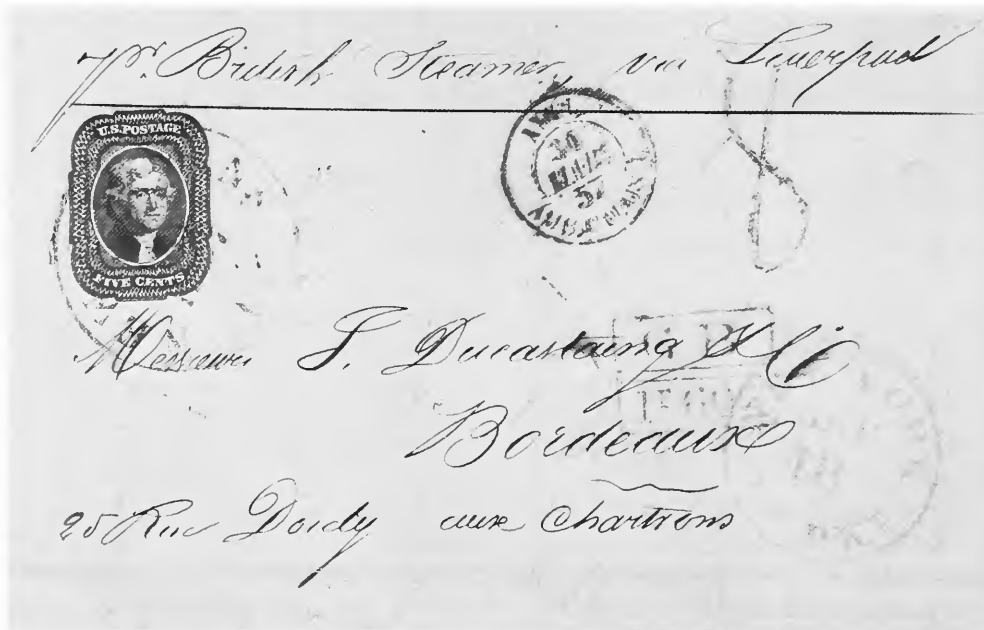 pr. British Steamer, via Liverpool
U.S. POSTAGE
FIVE CENTS
57
Messieurs J. Ducastaing & Cie
Bordeaux
25 Rue Doidy aux Chartrons